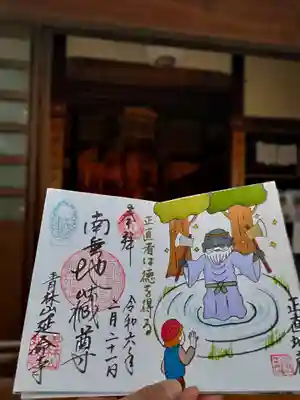 奉拝
南無地蔵尊
令和六年
二月二十一日
青林山延命寺
正直者は徳を得る